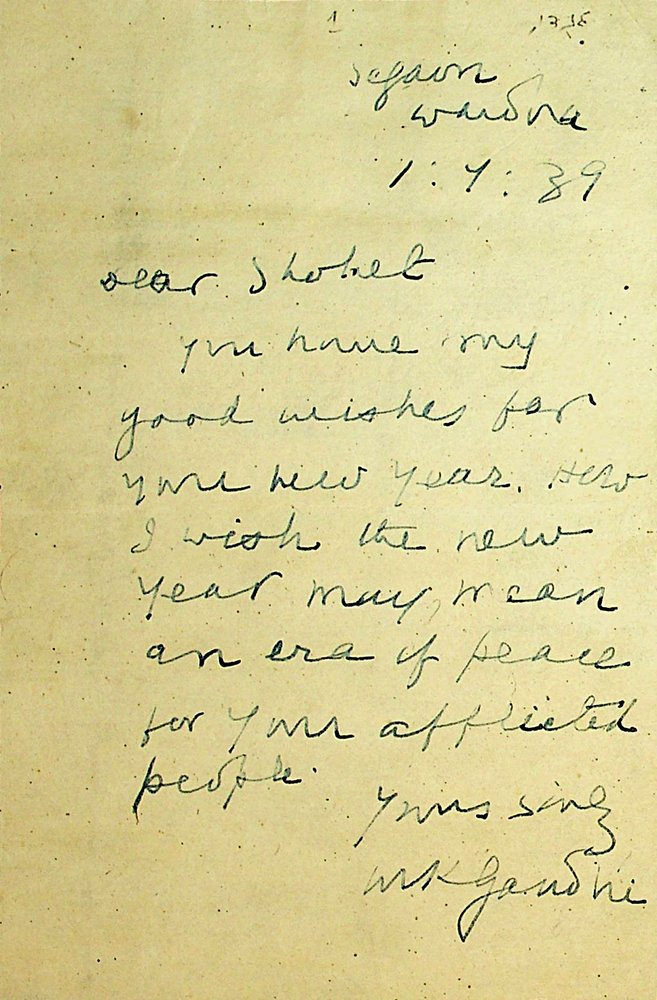 1
Segaon
Wardha
1:9:39
Dear Shohet
You have my
good wishes for
your new year. How
I wish the new
year may mean
an era of peace
for your afflicted
people.
Yours sincly
MKGandhi